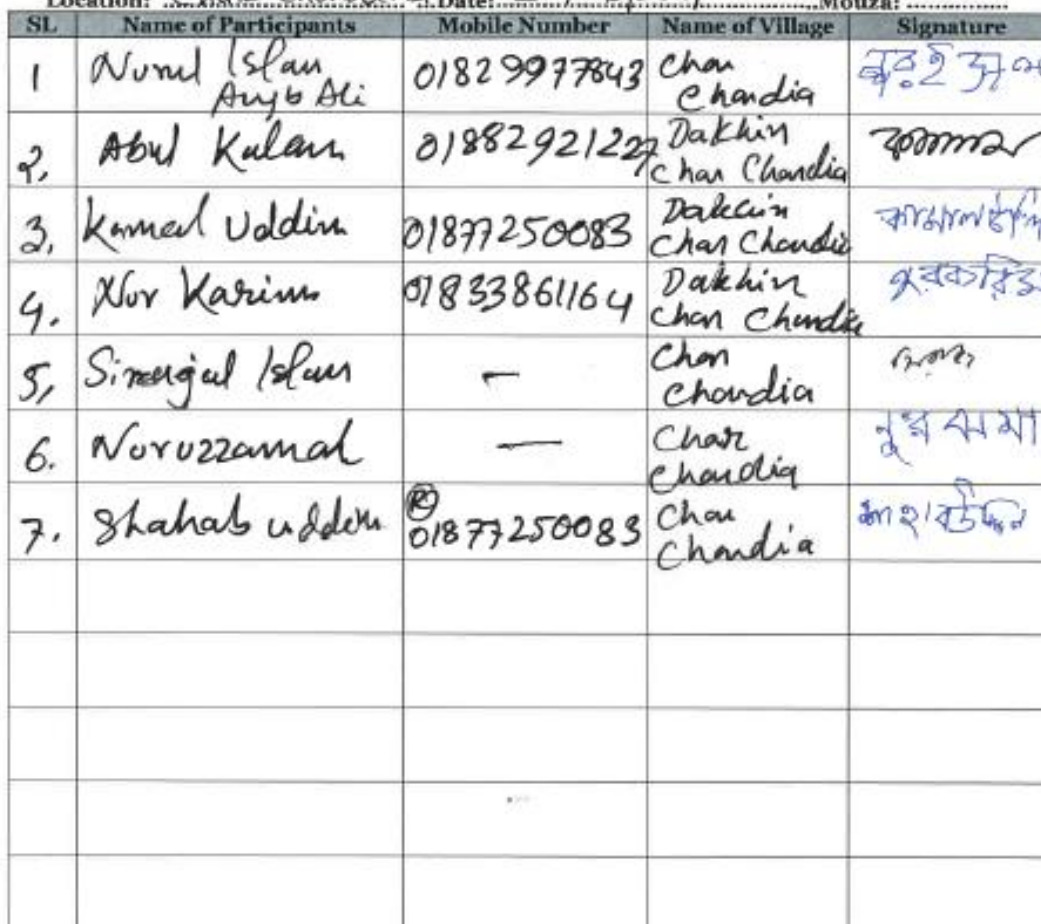 Location: Date: Mouza:
SL Name of Participants Mobile Number Name of Village Signature
1 Nurul Islam 01829977843 Char
Ayub Ali Chandia
2, Abul Kalam 01882921227 Dakhin
Char Chandia
3, Kamal Uddin 01877250083 Dakhin
Char Chandia কামালউদ্দিন
4. Nur Karim 01833861164 Dakhin
Char Chandia নুরকরিম
5, Sirajul Islam — Char
Chandia
6. Noruzzamal — Char
Chandia
7. Shahab uddin (R) 01877250083 Char
Chandia সাহাবউদ্দিন